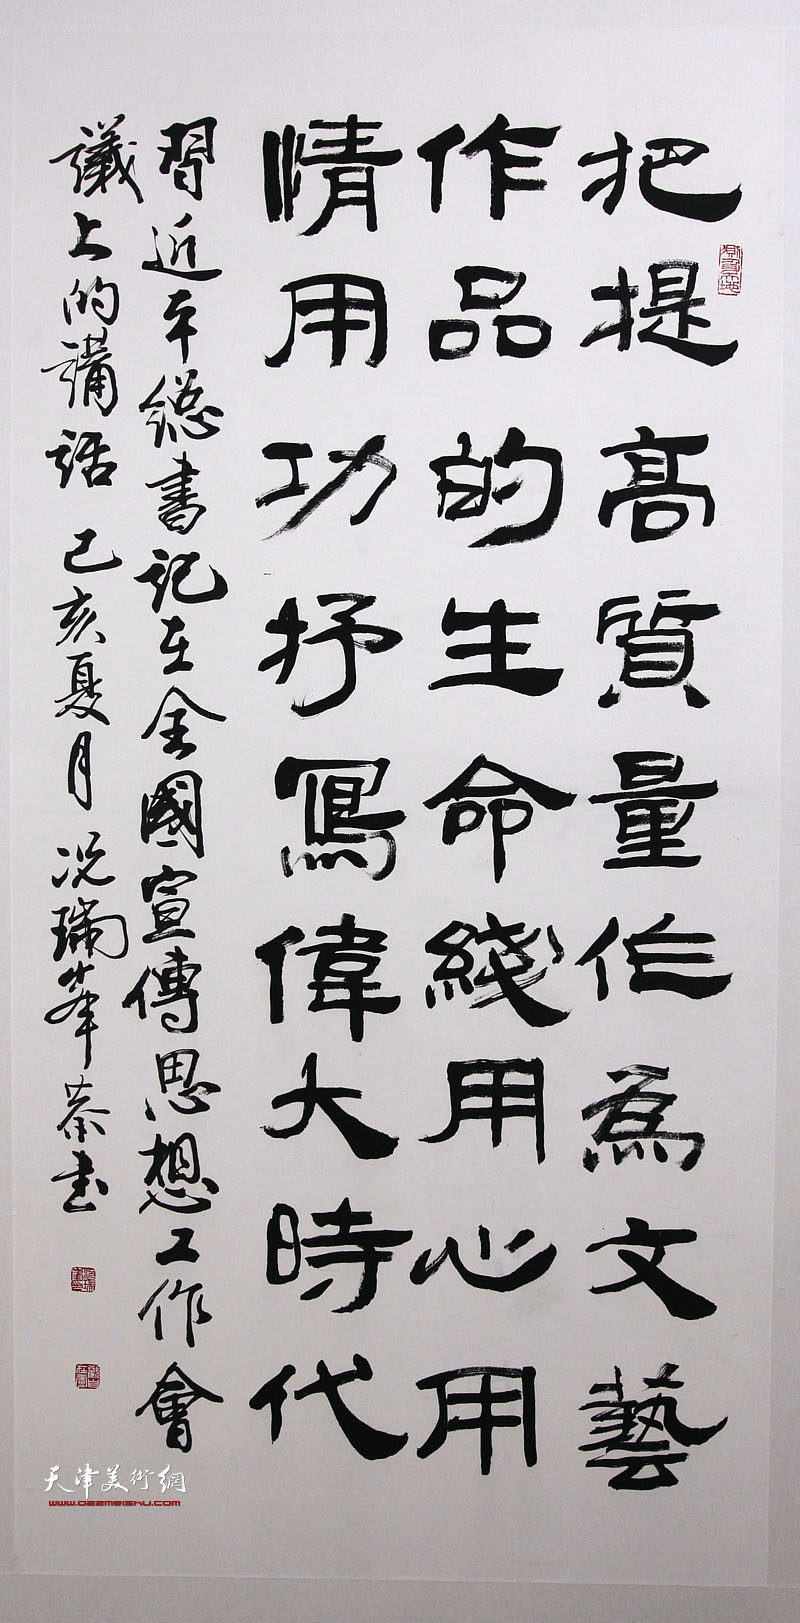 把提高質量作為文藝
作品的生命綫用心用
情用功抒寫偉大時代
習近平總書記在全國宣傳思想工作會
議上的講話 己亥夏月 况瑞峰恭书
天津美術網
www.022meishu.com